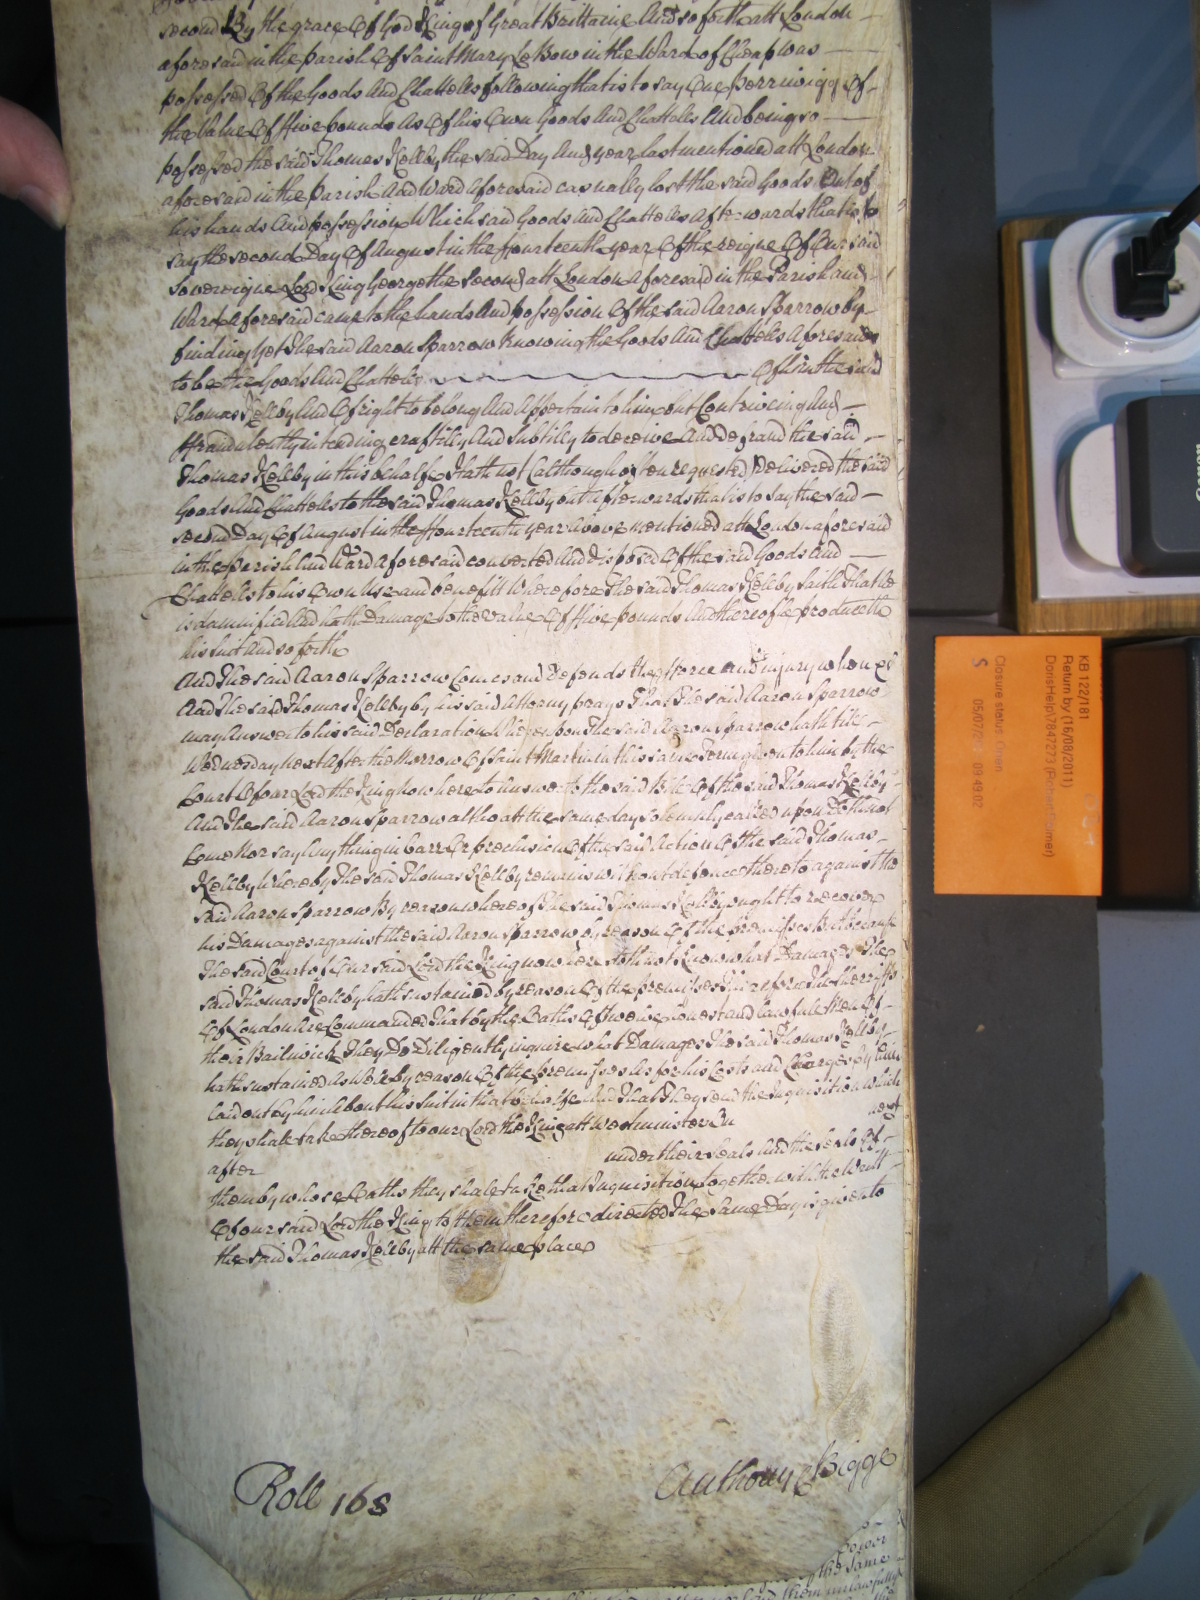 second By the grace Of God King of Great Brittaine And so forth att London
aforesaid in the parish Of Saint Mary Le Bow in the Ward of Cheap was
possessed Of the Goods And Chattells following that is to say One perriwigg Of
the Value Of ffive pounds As Of his Own Goods And Chattells And being so
possessed the said Thomas Kelleby the said Day And year last mentioned att London
aforesaid in the parish And Ward aforesaid casually lost the said Goods Out of
his hands And possession Which said Goods And Chattells Afterwards that is to
say the second Day Of August in the ffourteenth year Of the reigne Of Our said
Sovereigne Lord King George the Second att London Aforesaid in the Parish and
Ward aforesaid came to the hands And possession Of the said Aaron Sparrow by
finding Yet The said Aaron Sparrow knowing the Goods And Chattells Aforesaid
to be the Goods And Chattells Of him the said
Thomas Kelleby And Of right to belong And Appertain to him but Contriveing And
ffraudulently intending craftily And Subtilly to deceive And Defraud the said
Thomas Kelleby in this behalfe Hath not (although often requested) Delivered the said
Goods And Chattells to the said Thomas Kelleby but Afterwards that is to say the said
second Day Of August in the ffourteenth year Above mentioned att London aforesaid
in the parish And Ward aforesaid converted And disposed Of the said Goods And
Chattells to his Own Use and benefitt Wherefore The said Thomas Kelleby saith That he
is damnified And hath Damage to the value Of ffive pounds And thereof he produceth
his suit And so forth
And The said Aaron Sparrow Comes and Defends the fforce and injury when &c
And The said Thomas Kelleby by his said Attorny prays That The said Aaron Sparrow
may Answer to his said Declaration Whereupon The said Aaron Sparrow hath till
Wednesday next After the Morrow Of Saint Martin in this same Term given to him by the
Court Of our Lord the King now here to Answer to the said Bill Of the said Thomas Kelleby
And The said Aaron Sparrow altho att the same day solemnly called upon Doth not
Come Nor say Any thing in barr Or preclusion Of the said Action Of the said Thomas
Kelleby Whereby The said Thomas Kelleby remains without defence thereto against the
said Aaron Sparrow By reason whereof The said Thomas Kelleby ought to recover
his Damages against the said Aaron Sparrow by reason Of the premisses But because
The said Court of Our said Lord the King now here doth not know what Damages The
said Thomas Kelleby hath sustained by reason Of the premisses Therefore The Sheriffs
Of London Are Commanded That by the Oaths Of twelve honest and lawfull Men Of
their Bailiwick They Do Diligently inquire what Damages The said Thomas Kelleby
hath sustained As Well by reason Of the premisses As for his Costs and Charges by him
laid out by him about his suit in that behalfe And That They send the Inquisition which
they shall take thereof to our Lord the King att Westminster On next
after under their seals And the seals Of
them by whose Oaths they shall take that Inquisition together with the Writt
Of our said Lord the King to them therefore directed The same Day is given to
the said Thomas Kelleby att the same place
Roll 168
Anthony Bigge
power
the same
them unlawfully
KB 122/181
Return by (16/08/2011)
Closure status: Open
S 05/07/20 09:49:02